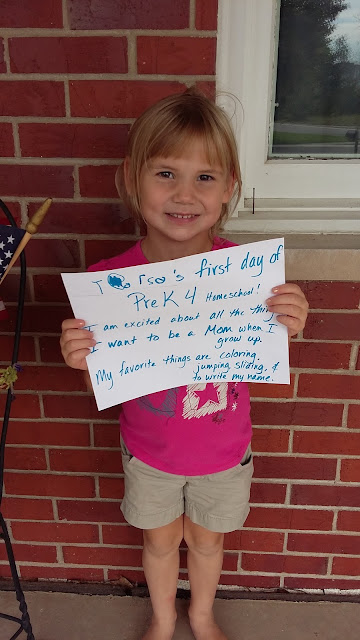 's first day of
Pre K 4 Homeschool!
I am excited about all the thing
I want to be a Mom when I
grow up.
My favorite things are coloring,
jumping, sliding, &
to write my name.